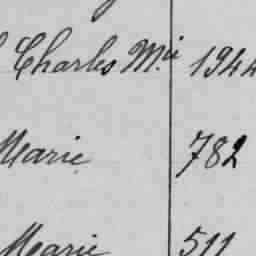 Charles M.ie 1944
Marie 782
Marie 511